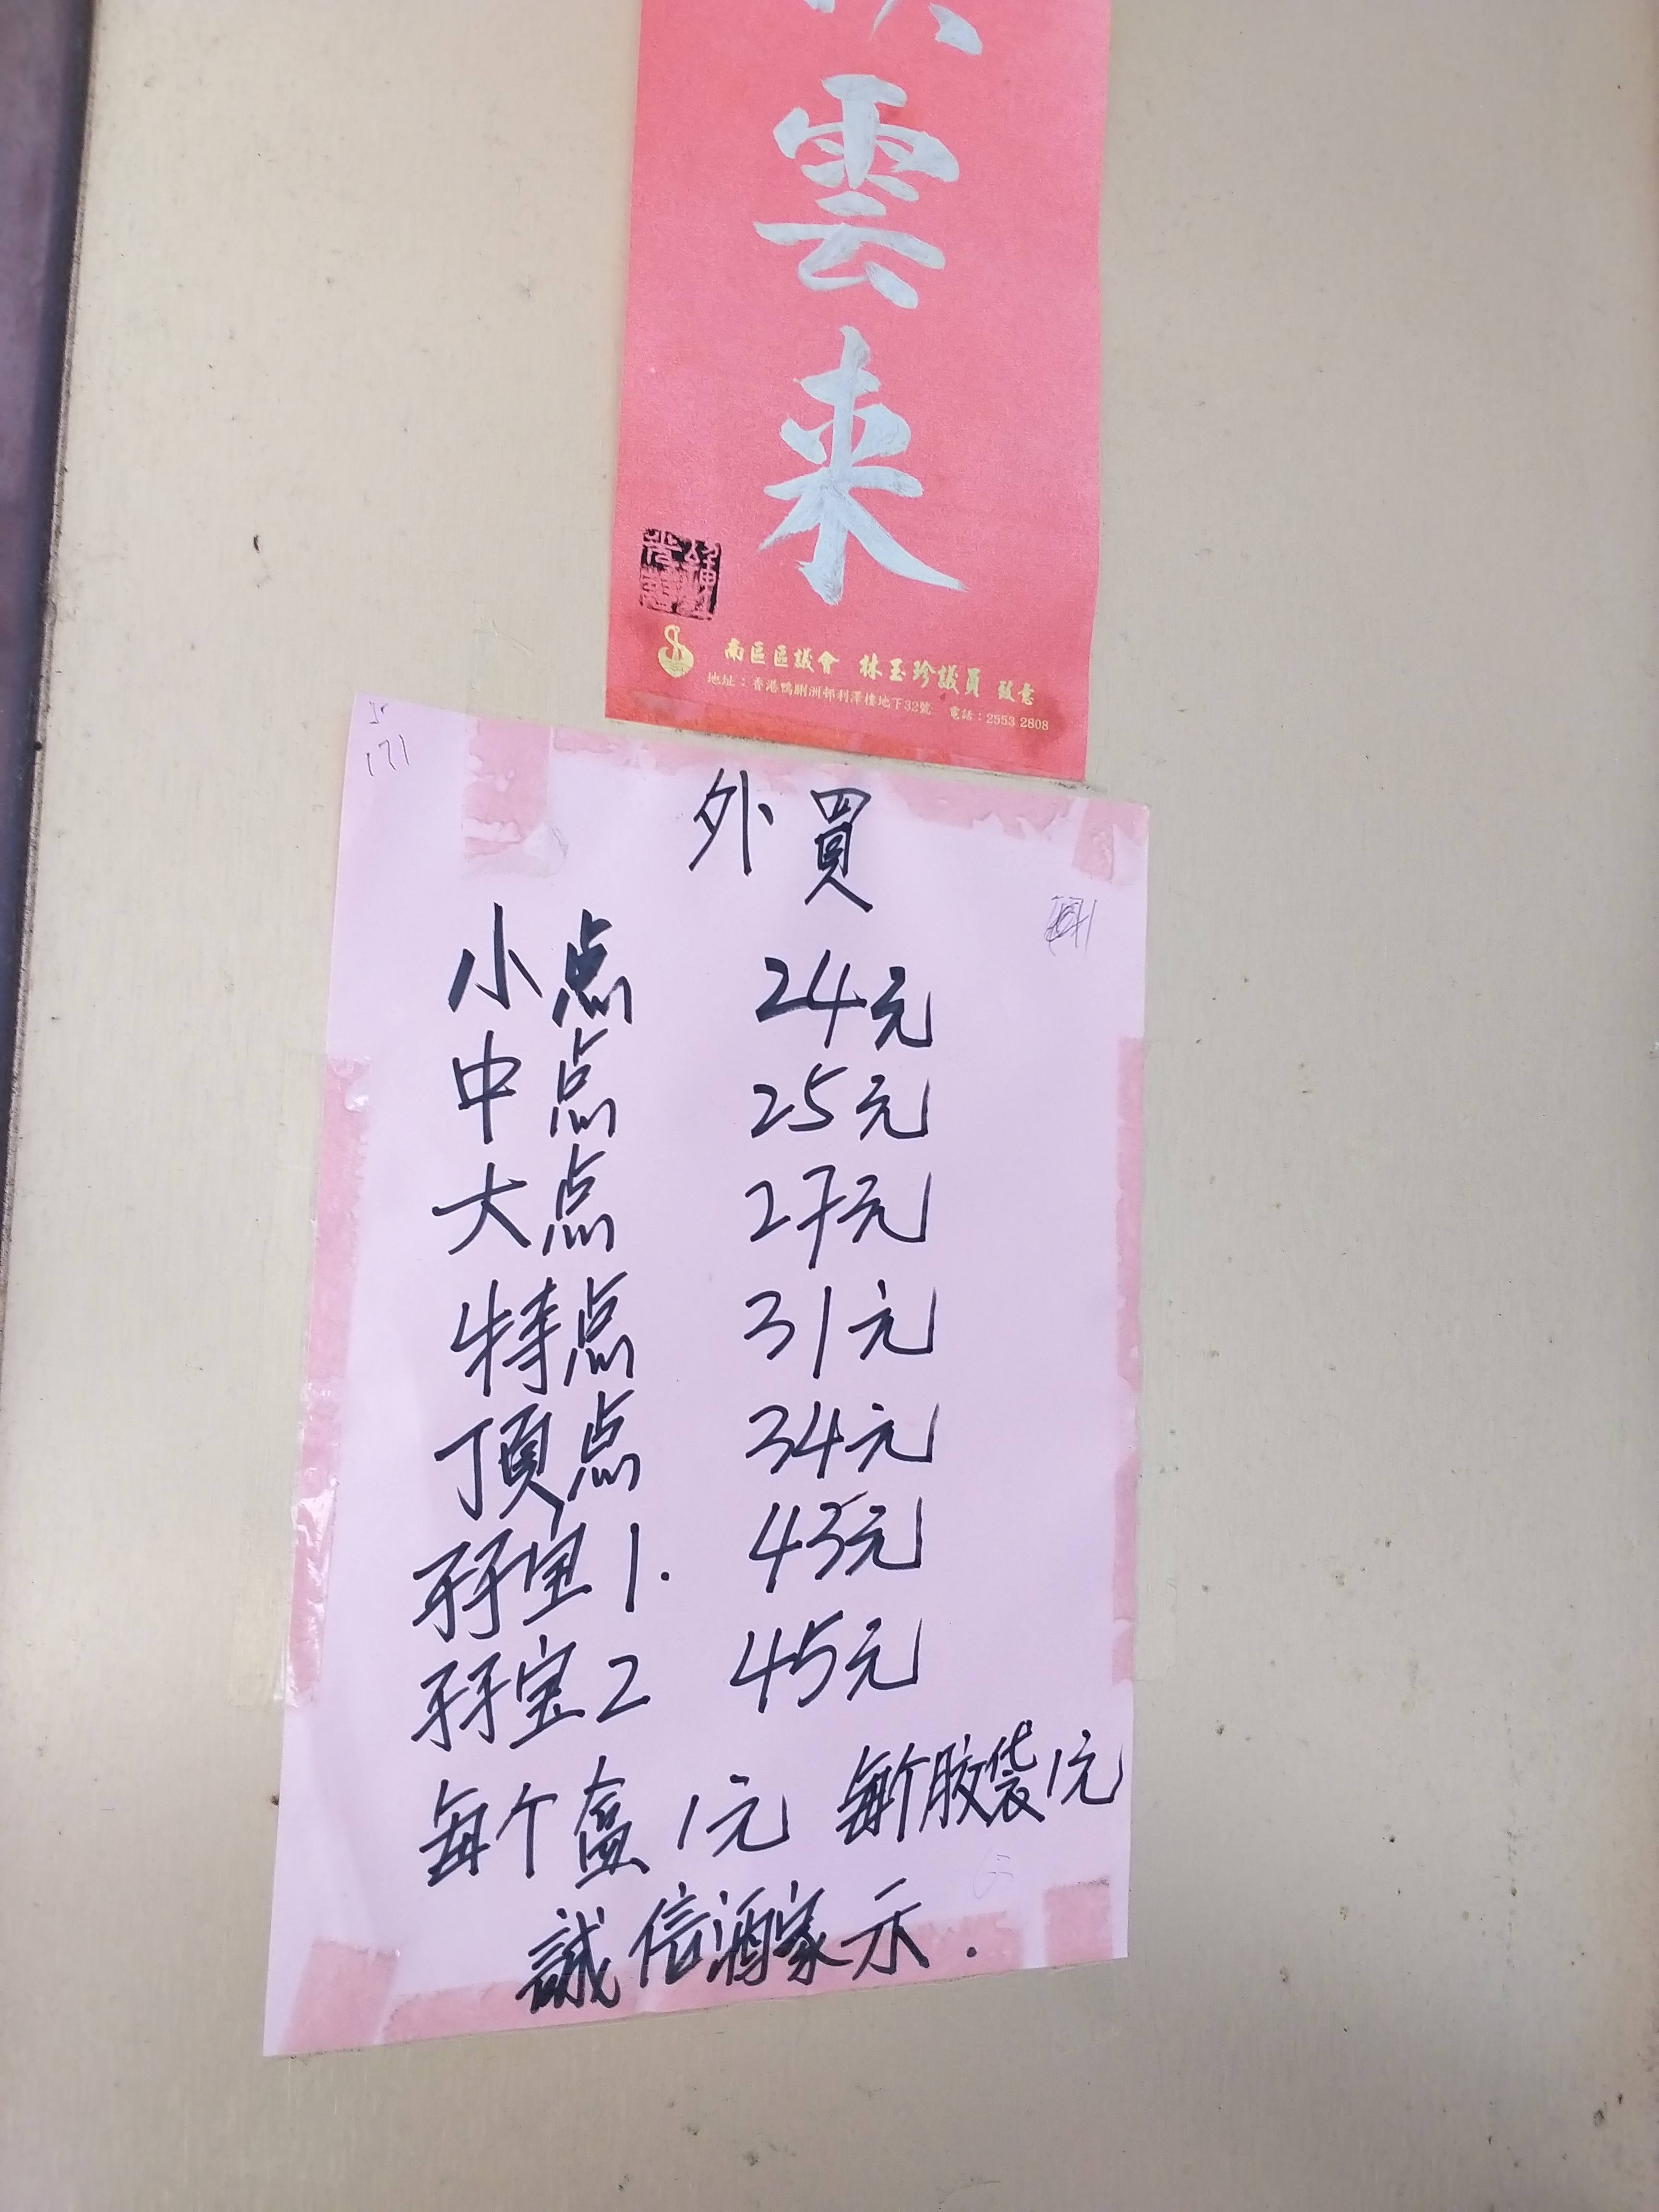 雲
来
南區區議會 林玉珍議員 致意
地址：香港鴨脷洲邨利澤樓地下32號 電話：2553 2808
171
外買
小点 24元
中点 25元
大点 27元
特点 31元
頂点 34元
孖宝1. 43元
孖宝2 45元
每个盒1元 每个胶袋1元
誠信酒家示.